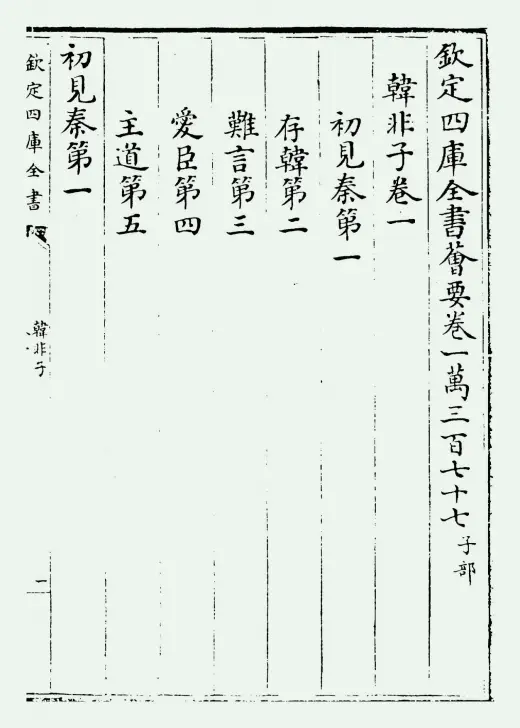 欽定四庫全書薈要卷一萬三百七十七子部
韓非子卷一
初見秦第一
存韓第二
難言第三
愛臣第四
主道第五
初見秦第一
欽定四庫全書
韓非子
一